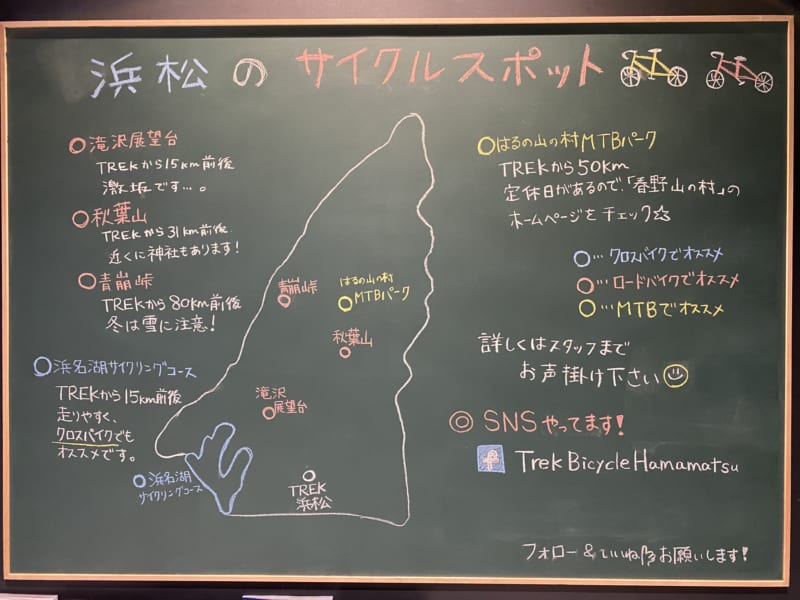 浜松のサイクルスポット
滝沢展望台
TREKから15km前後
激坂です…。
秋葉山
TREKから31km前後
近くに神社もあります!
青崩峠
TREKから80km前後
冬は雪に注意!
浜名湖サイクリングコース
TREKから15km前後
走りやすく、
クロスバイクでも
オススメです。
青崩峠
はるの山の村
MTBパーク
秋葉山
滝沢
展望台
浜名湖
サイクリングコース
TREK
浜松
はるの山の村MTBパーク
TREKから50km
定休日があるので、「春野山の村」の
ホームページをチェック☆
…クロスバイクでオススメ
…ロードバイクでオススメ
…MTBでオススメ
詳しくはスタッフまで
お声掛け下さい
◎ SNSやってます!
Trek Bicycle Hamamatsu
フォロー&いいね!お願いします!